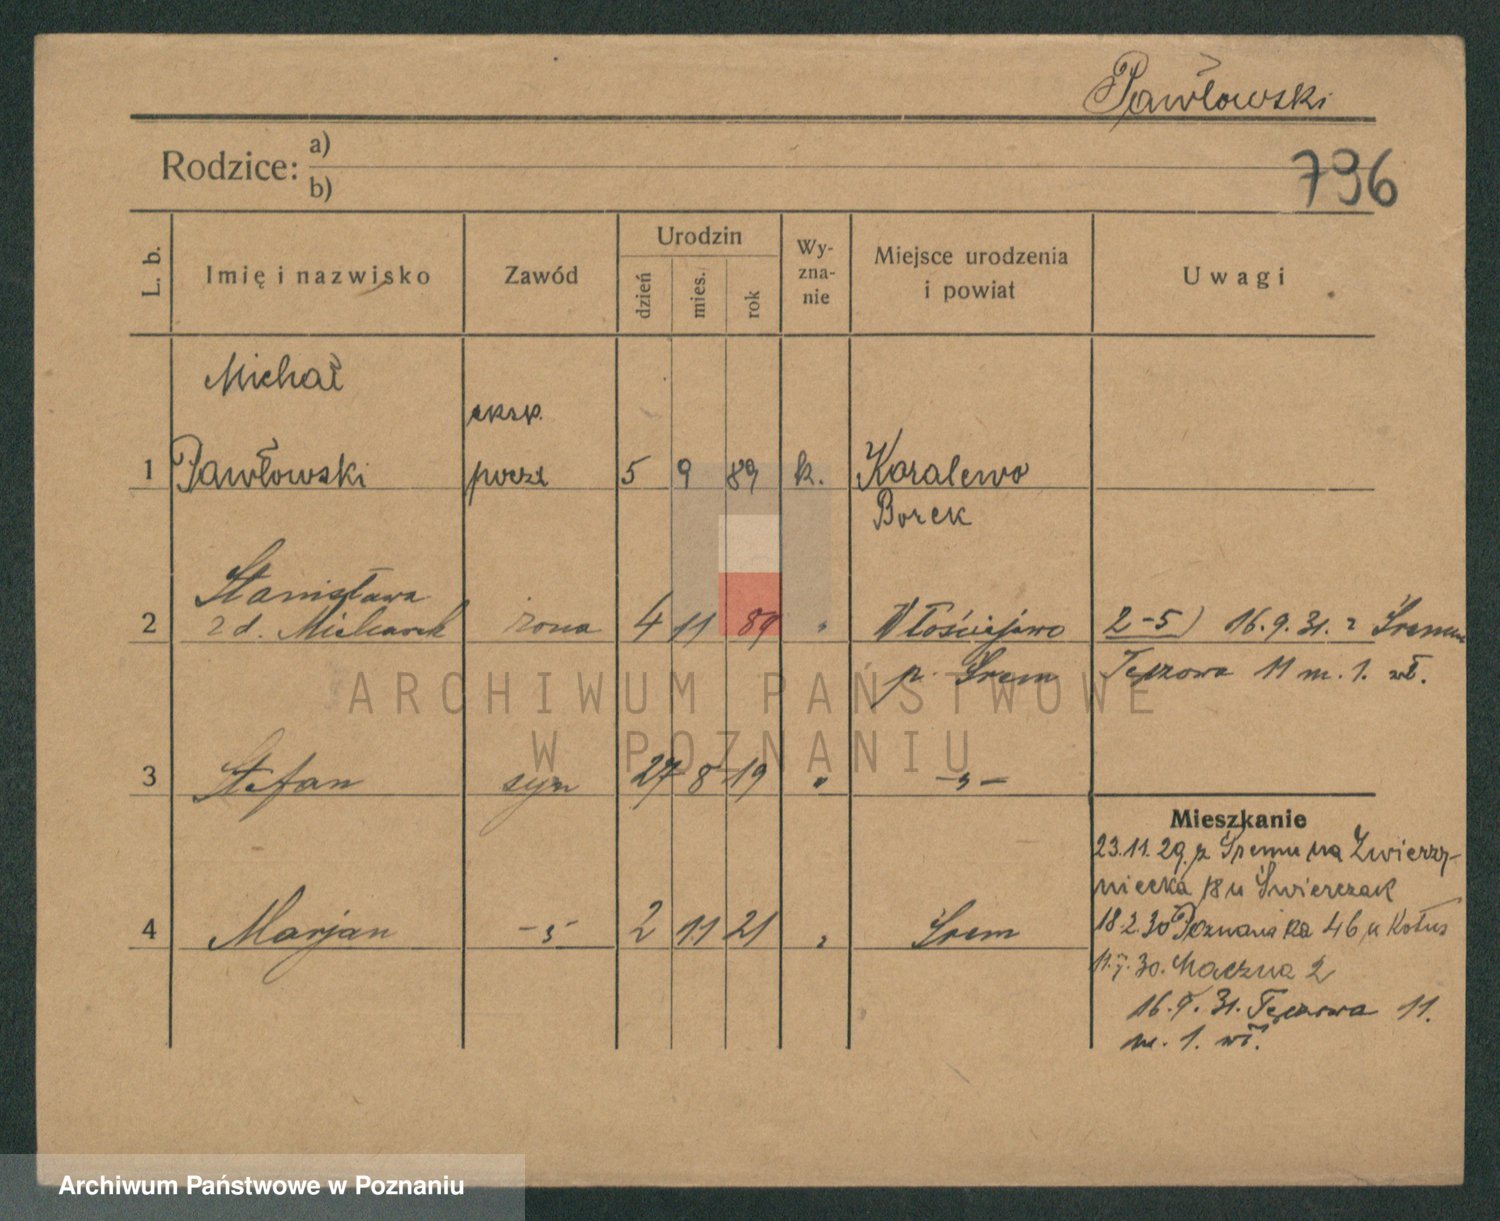 Pawłowski
Rodzice: a)
b)
796
L. b.
Imię i nazwisko
Zawód
Urodzin
dzień
mies.
rok
Wy-
zna-
nie
Miejsce urodzenia
i powiat
Uwagi
Michał
eksp.
1 Pawłowski poczt 5 9 89 k. Koralewo
Borek
Stanisława
2 z d. Mielcarek żona 4 11 89 " Włościejewo 2-5) 16.9.31. z Śremu
p. Śrem Tęczowa 11 m. 1. wł.
ARCHIWUM PAŃSTWOWE
W POZNANIU
3 Stefan syn 27 8 19 " -"-
Mieszkanie
23.11.29. z Śremu na Zwierzy-
niecka 18 u Świerczak
4 Marjan -"- 2 11 21 " Śrem
18.2.30 Poznańska 46 u Kotus
30. Mączna 2
16.9.31. Tęczowa 11.
m. 1. wł.
Archiwum Państwowe w Poznaniu